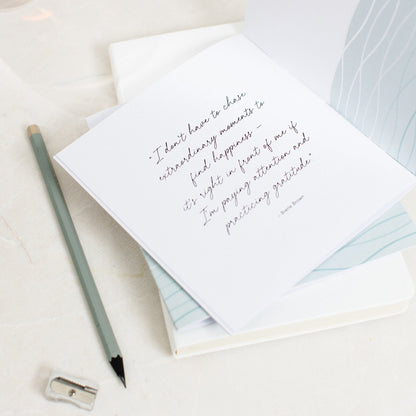 "I don't have to chase
extraordinary moments to
find happiness –
it's right in front of me if
I'm paying attention and
practicing gratitude."
- Brené Brown